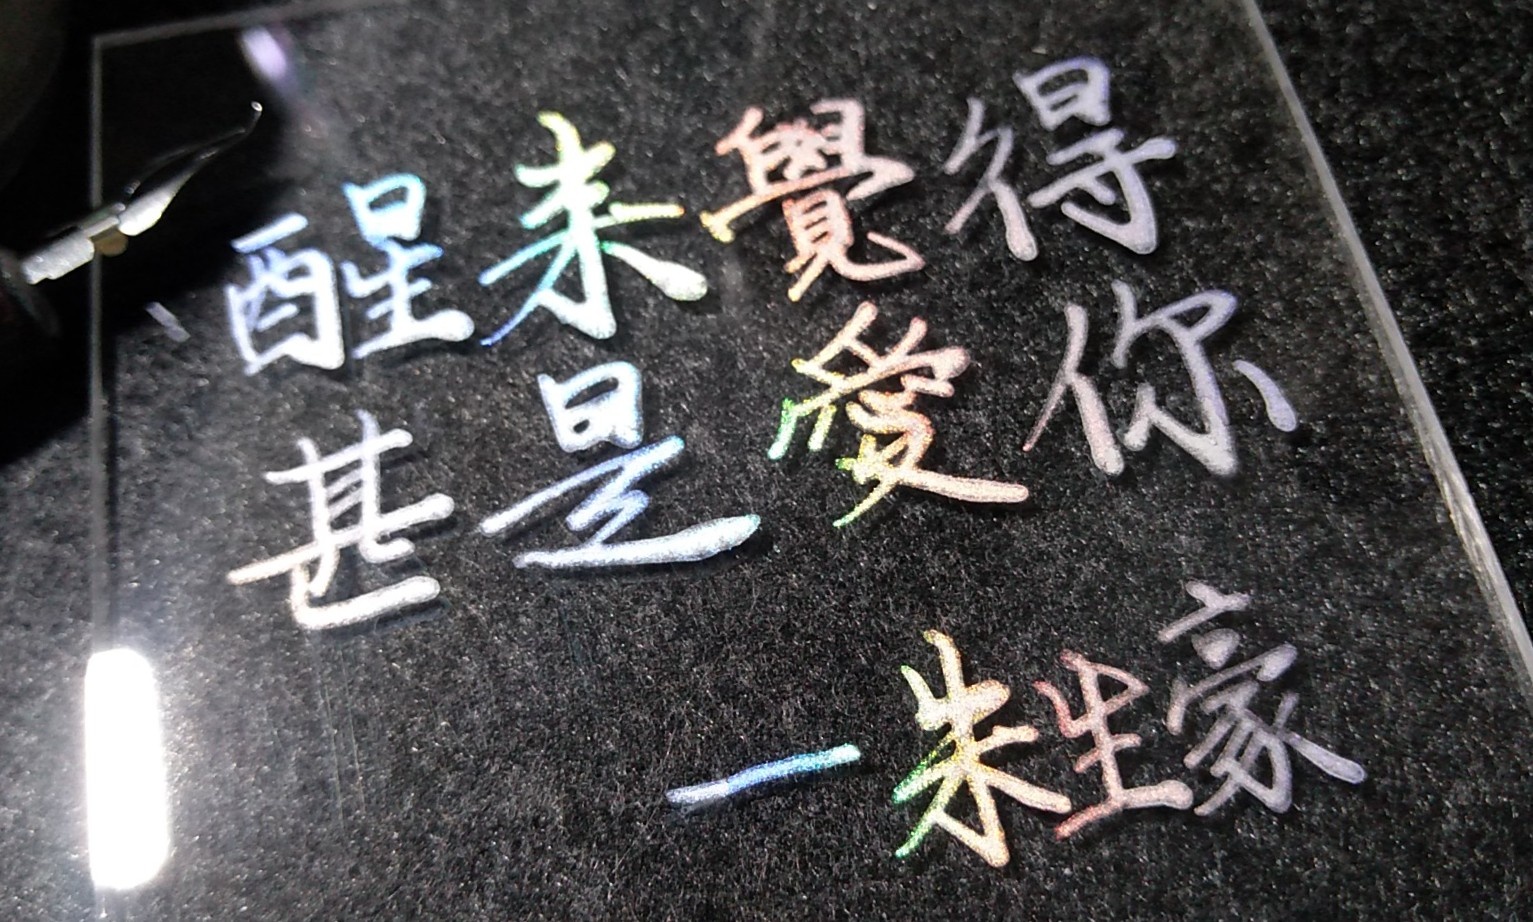 醒来覺得
甚是愛你
—朱生豪